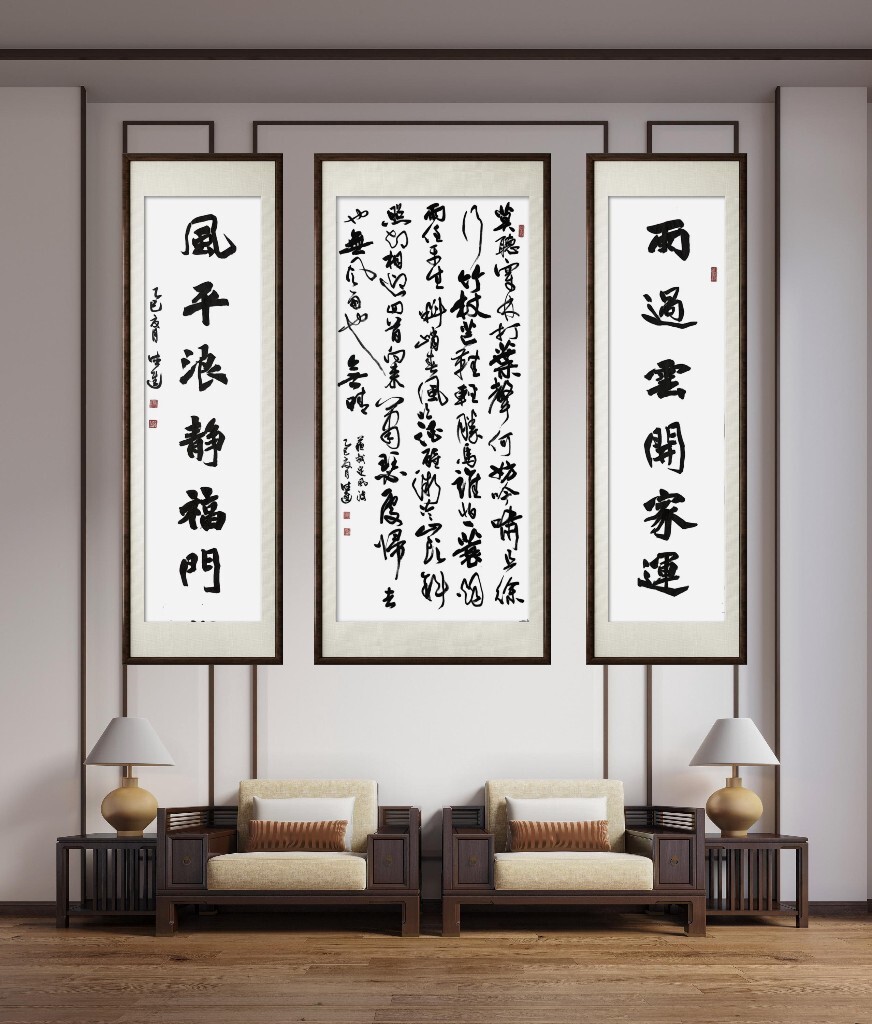 雨過雲開家運
莫聽穿林打葉聲何妨吟嘯且徐
行竹杖芒鞋輕勝馬誰怕一蓑烟
雨任平生料峭春風吹酒醒微冷山頭斜
照却相迎回首向來蕭瑟處歸去
也無風雨也無晴
蘇軾定風波
乙巳夏月
風平浪静福門
乙巳夏月